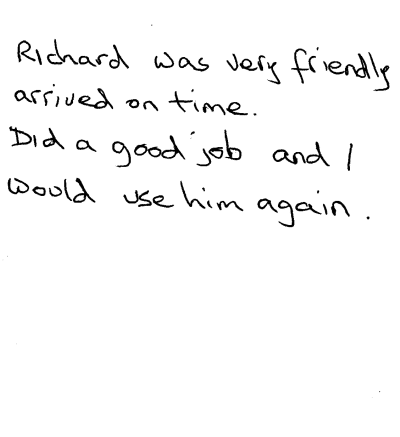 Richard was very friendly
arrived on time.
Did a good job and I
would use him again.